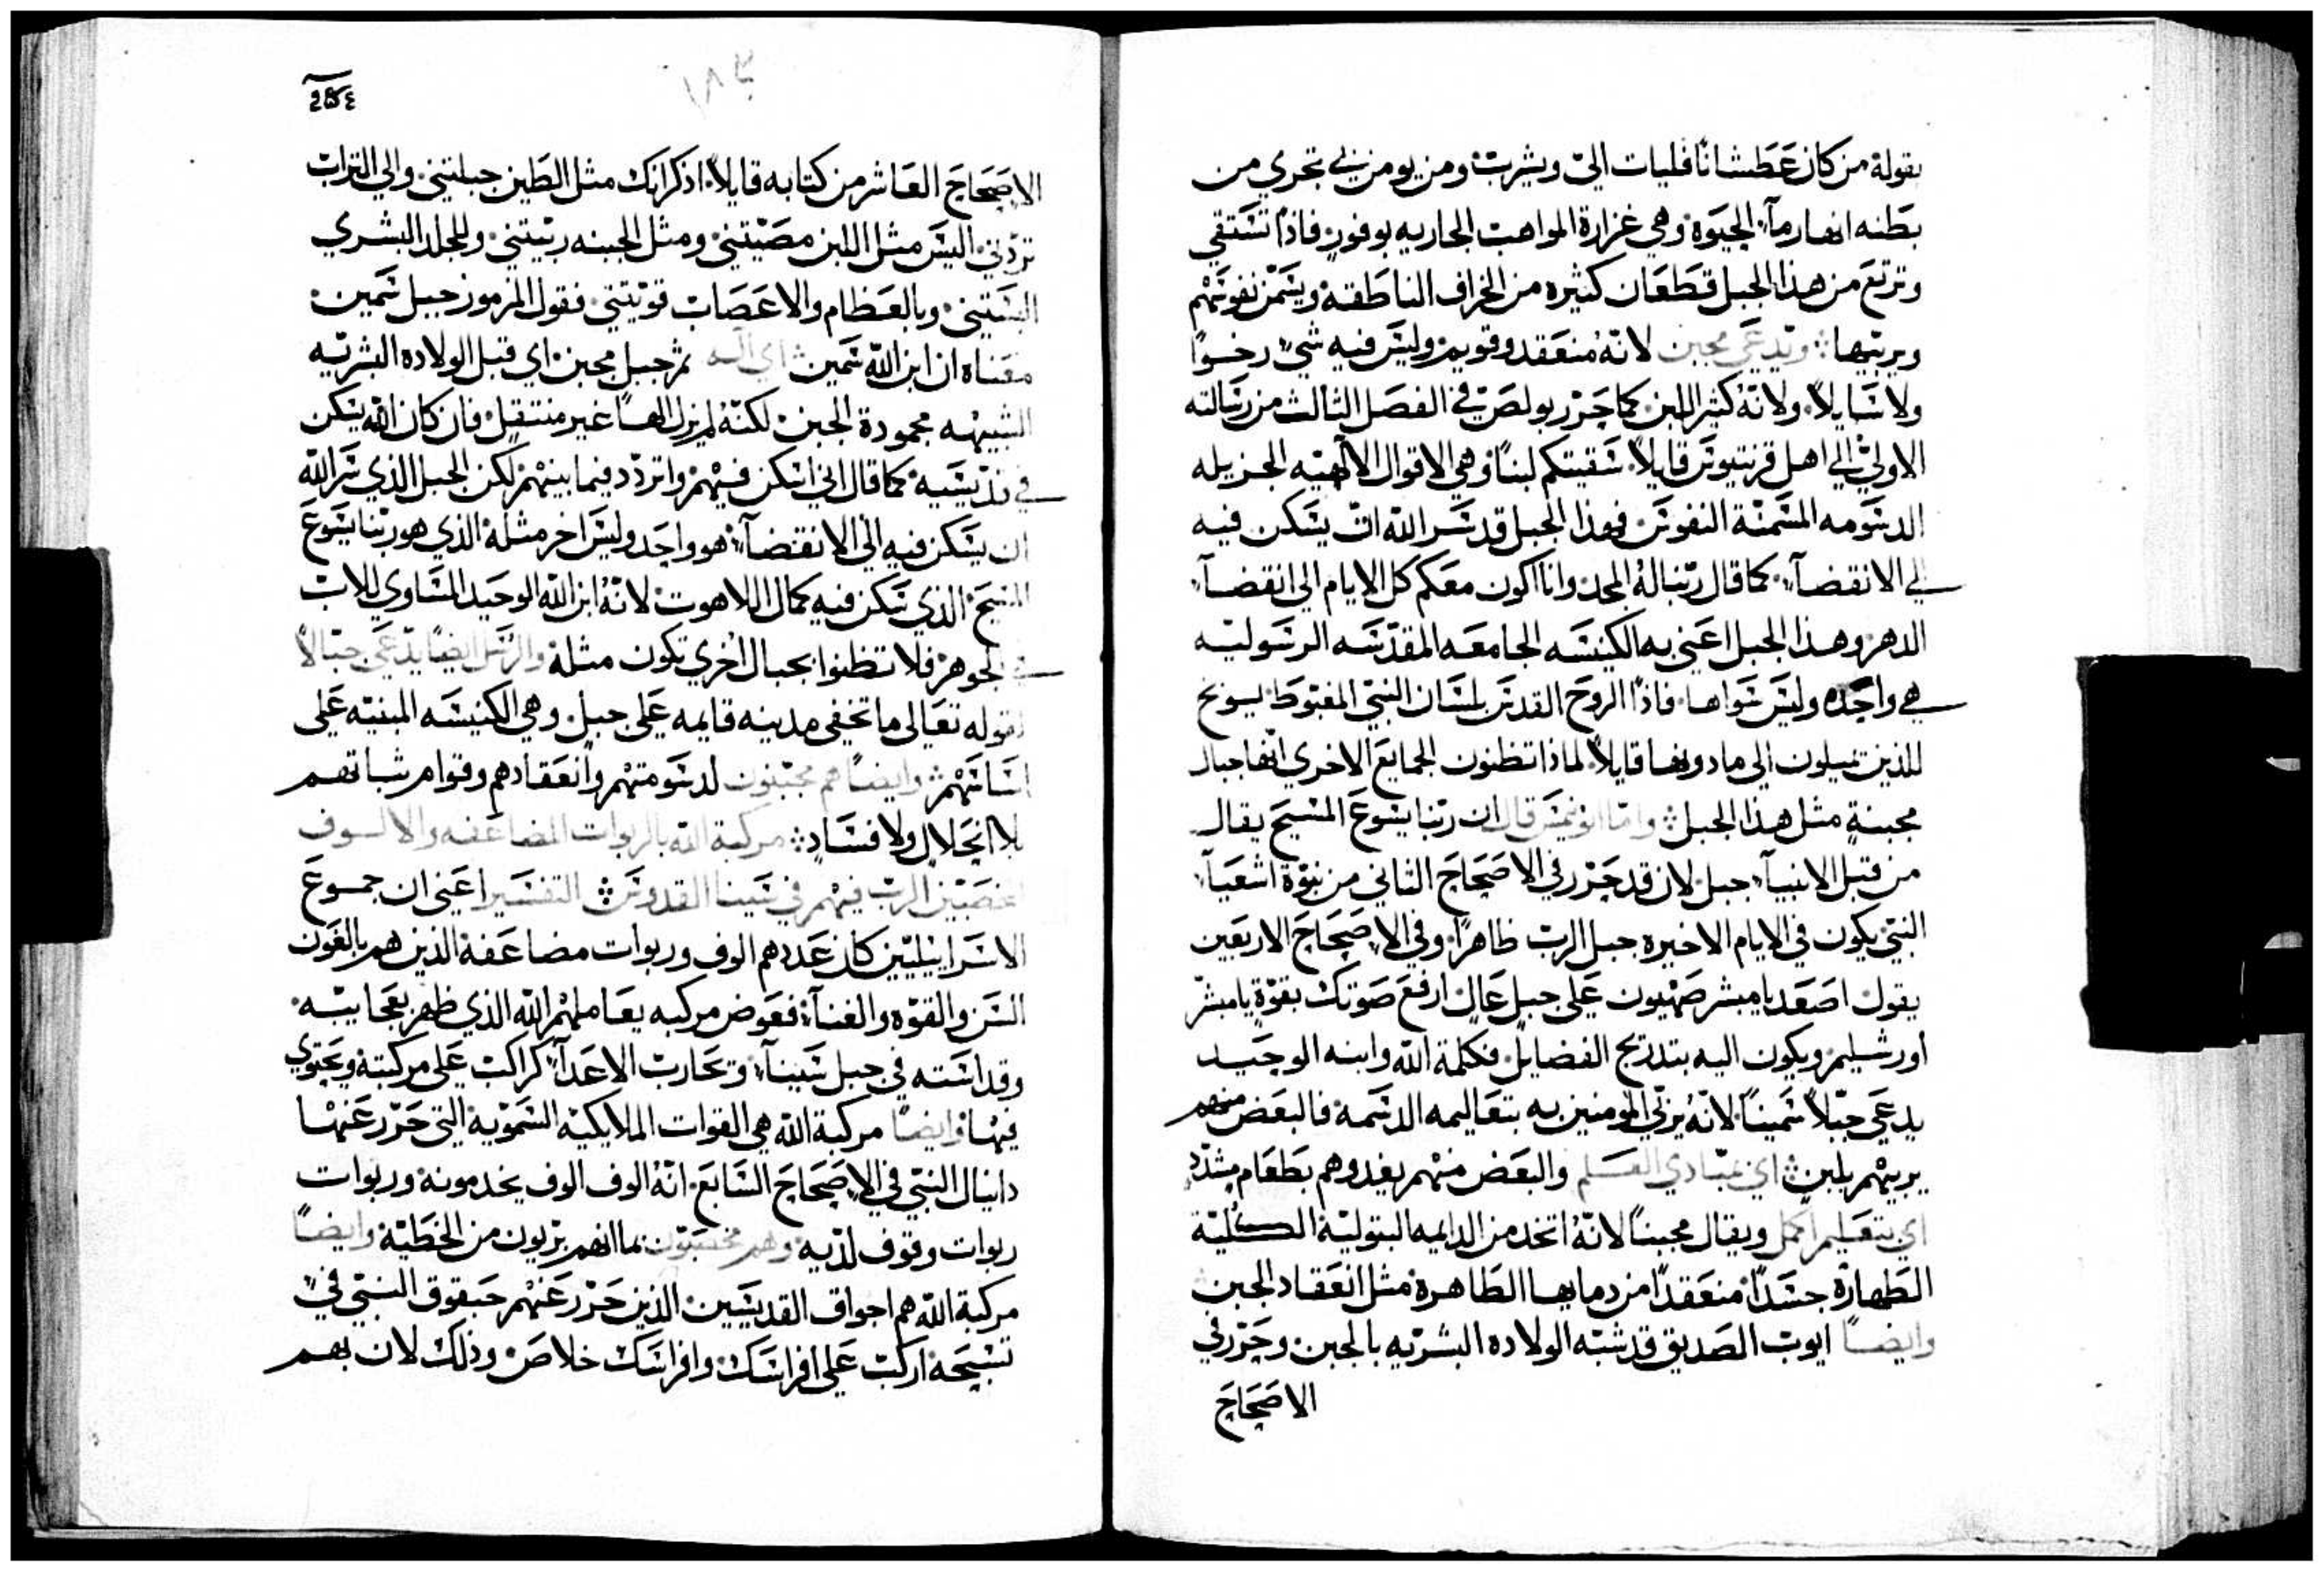 بقوله من كان عَطشانًا فليات اليّ ويشرب ومن يومن بي تجري من
بطنه انهار مآء الحيوة وهي غزارة المواهب الجاريه بوفور فاذًا تستقي
وترتع من هذا الجبل قطعان كثيره من الخراف الناطقة ويسمن نفوسهم
ويربيها وتدعي مجبن لانه منعقد وقويم وليس فيه شيء رخوًا
ولا سايلاً ولانه كثير اللبن كما حرر بولص في الفصل الثالث من رسالته
الاولي الي اهل قرنتيوس قايلاً سقيتكم لبنًا وهي الاقوال الالهيه الجزيله
الدسومه المسمنة النفوس فهذا الجبل قد سر الله ان يسكن فيه
الي الانقضآء كما قال ربنا له المجد وانا اكون معكم كل الايام الي انقضآء
الدهر وهذا الجبل اعني به الكنيسه الجامعه المقدسه الرسوليه
هي واحده وليس سواها فاذًا الروح القدس بلسان النبي المغبوط يوبخ
للذين يميلون الي ما دونها قايلاً لماذا تظنون الجمايع الاخري انها جبال
مجبنة مثل هذا الجبل وامّا قال ان ربنا يسوع المسيح يقال
من قبل الانبيآء جبل لان قد حرر في الاصحاح الثاني من نبوة اشعيآء
النبي يكون في الايام الاخيره جبل الرب ظاهرًا وفي الاصحاح الاربعين
يقول اصعد يا مبشر صهيون على جبل عال ارفع صوتك بقوة يا مبشر
اورشليم ويكون اليه بتدريج الفضايل فكلمة الله وابنه الوحيد
يدعي جبلاً سمينًا لانه يربي المومنين به بتعاليمه الدسمة فالبعض منهم
يربيهم بلبن اي بمبادي العلم والبعض منهم يغدوهم بطعام مشدد
اي بتعليم اكمل ويقال مجبنًا لانه اتخد من الدايمه البتولية الكلية
الطهارة جسدًا منعقدًا من دمايها الطاهرة مثل انعقاد الجبن
وايضًا ايوب الصديق قد شبه الولاده البشريه بالجبن وحرر في
الاصحاح
الاصحاح العاشر من كتابه قايلاً اذكر انك مثل الطين جبلتني والي التراب
تردني اليس مثل اللبن مصيتني ومثل الجبنه ربيتني وللجلد البشري
البستني وبالعظام والاعصاب قويتني فقول المزمور جبل سمين
معناه ان ابن الله سمين اي اله ثم جبل مجبن اي قبل الولاده البشريه
الشبيهه بجمودة الجبن لكنه لم يزل الهًا غير منتقل فان كان الله يسكن
في قديسيه كما قال اني اسكن فيهم واتردد فيما بينهم لكن الجبل الذي سر الله
ان يسكن فيه الي الانقضآء هو واحد وليس اخر مثله الذي هو ربنا يسوع
المسيح الذي سكن فيه كمال اللاهوت لانه ابن الله الوحيد المساوي للاب
في الجوهر فلا تظنوا بجبال اخري تكون مثله والرسل ايضًا تدعي جبالاً
بقوله تعالى ما تخفى مدينه قايمه على جبل وهي الكنيسه المبنيه على
اساسهم وايضًا هم مجبنون لدسومتهم وانعقادهم وقوام ثباتهم
بلا انحلال ولا فساد مركبة الله بالربوات المضاعفه والالوف
مخصبين الرب فيهم في سينا القدوس التفسير اعني ان جموع
الاسراييليين كان عددهم الوف وربوات مضاعفة الذين هم بالغون
السن والقوه والغنآء فعوض مركبه يعاملهم الله الذي ظهر بعجايبه
وقداسته في جبل سينآء وتحارب الاعدآء كراكب على مركبته ويحتوي
فيها وايضًا مركبة الله هي القوات الملايكية السموية التي حرر عنها
دانيال النبي في الاصحاح السابع انه الوف الوف يخدمونه وربوات
ربوات وقوف لديه وهم مخصبون بما انهم بريون من الخطية وايضًا
مركبة الله هم اجواق القديسين الذين حرر عنهم حبقوق النبي في
تسبيحه اركب على افراسك وافراسك خلاص وذلك لان بهم